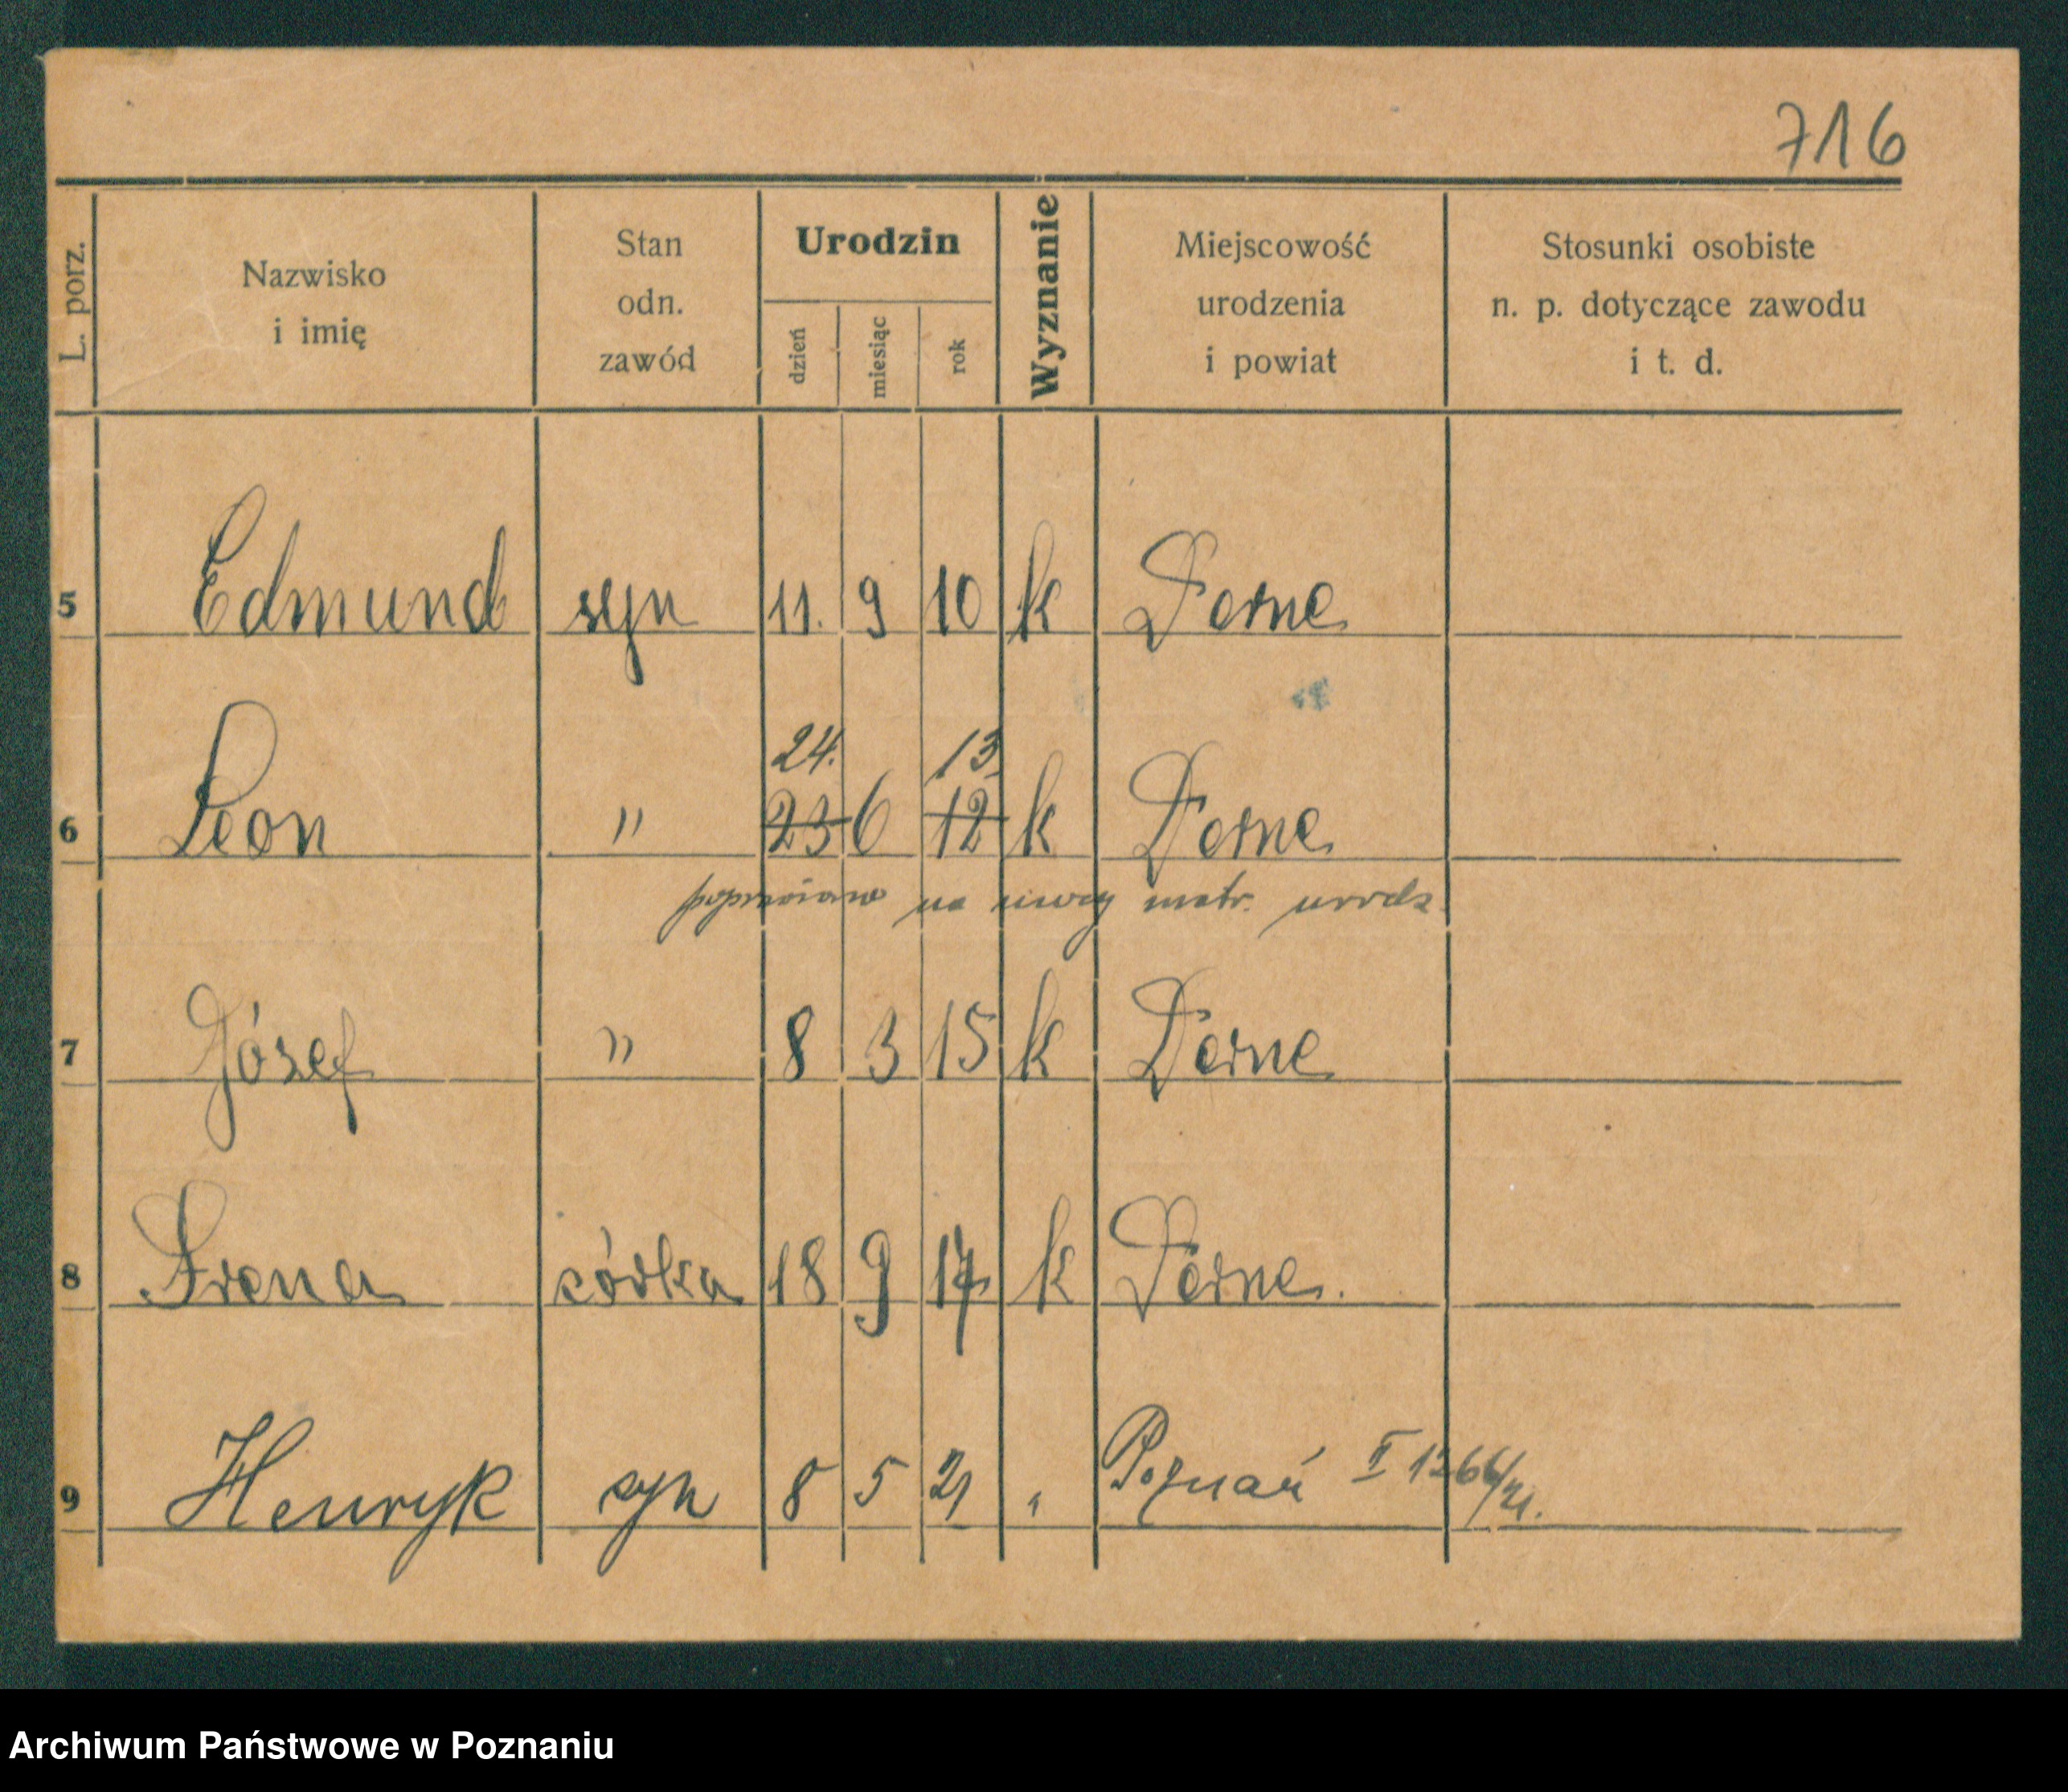 716
L. porz.
Nazwisko i imię
Stan odn. zawód
Urodzin
dzień miesiąc rok
Wyznanie
Miejscowość urodzenia i powiat
Stosunki osobiste n. p. dotyczące zawodu i t. d.
5 Edmund syn 11. 9 10 k Derne
24. 13.
6 Leon " 23 6 12 k Derne
na matr. urodz.
7 Józef " 8 3 15 k Derne
8 Irena córka 18 9 17 k Derne.
9 Henryk syn 8 5 21 " Poznań II 1266/21.
Archiwum Państwowe w Poznaniu